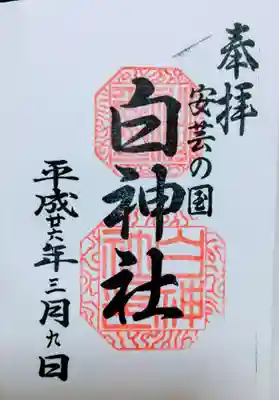 奉拝
安芸の国
白神社
平成廿六年三月九日
白神社